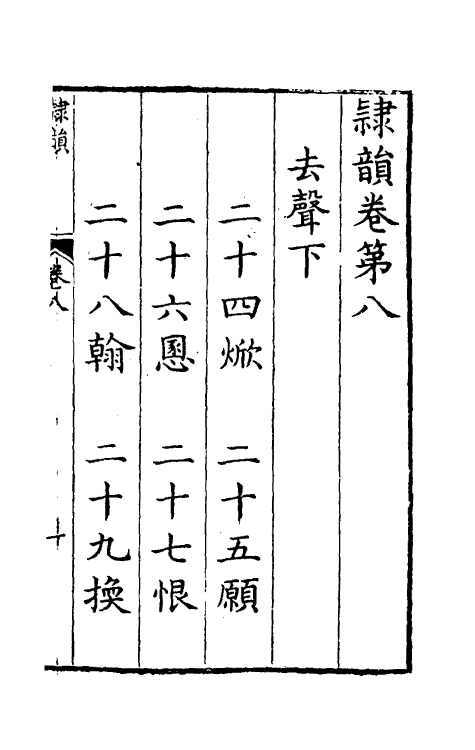 隷韻卷第八
去聲下
二十四焮 二十五願
二十六慁 二十七恨
二十八翰 二十九換
隷韻 卷八 十